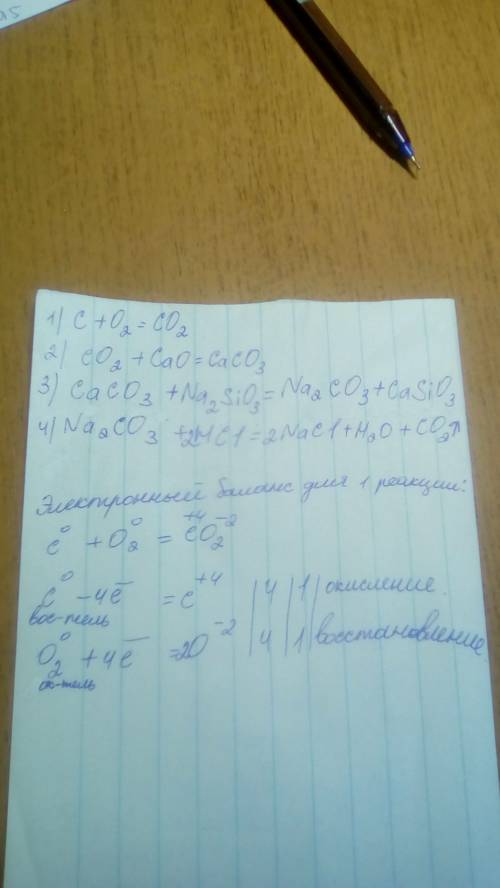 1) C + O₂ = CO₂
2) CO₂ + CaO = CaCO₃
3) CaCO₃ + Na₂SiO₃ = Na₂CO₃ + CaSiO₃
4) Na₂CO₃ + 2HCl = 2NaCl + H₂O + CO₂↑
Электронный баланс для 1 реакции:
C⁰ + O₂⁰ = C⁺⁴O₂⁻²
C⁰ - 4e̅ = C⁺⁴ | 4 | 1 | окисление.
вос-тель
O₂⁰ + 4e̅ = 2O⁻² | 4 | 1 | восстановление.
ок-тель